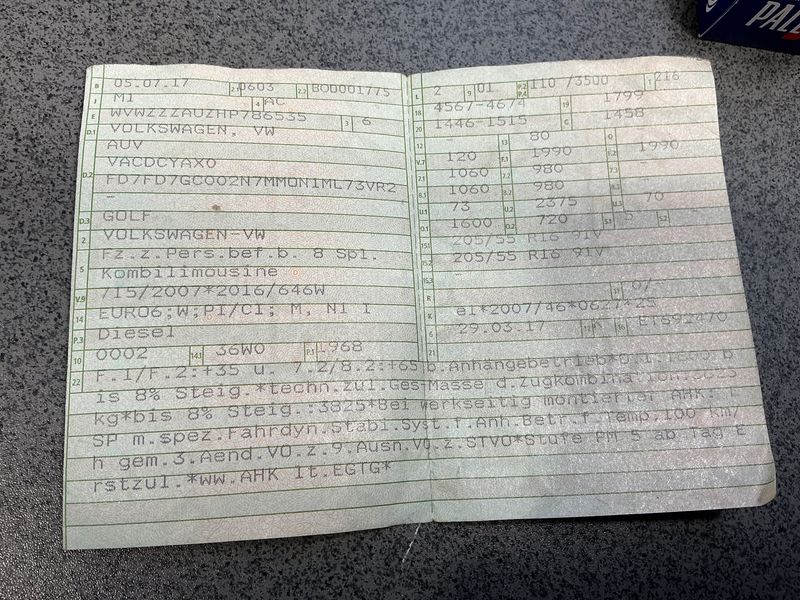 B 05.07.17 2.1 0603 2.2 BOD001775
J M1 4 AC
E WVWZZZAUZHP786535 3 6
D.1 VOLKSWAGEN, VW
AUV
D.2 VACDCYAX0
FD7FD7GC002N7MMON1ML73VR2
-
D.3 GOLF
2 VOLKSWAGEN-VW
5 Fz.z.Pers.bef.b. 8 Spl.
Kombilimousine
V.9 715/2007*2016/646W
14 EURO6;W;PI/CI; M, N1 I
P.3 Diesel
10 0002 14.1 36W0 P.1 1968
L 2 9 01 P.2 P.4 110 /3500 T 216
18 4567-4674 19 1799
20 1446-1515 G 1458
12 - 13 80 Q -
V.7 120 F.1 1990 F.2 1990
7.1 1060 7.2 980 7.3 -
8.1 1060 8.2 980 8.3 -
U.1 73 U.2 2375 U.3 70
O.1 1600 O.2 720 S.1 5 S.2
15.1 205/55 R16 91V
15.2 205/55 R16 91V
15.3 -
R
K e1*2007/46*0627*25
6 29.03.17 17 K 16
21
22 F.1/F.2:+35 u. 7.2/8.2:+65 b.Anhängebetrieb*
is 8% Steig.*techn.zul.Ges-Masse d.Zugkombination:
kg*bis 8% Steig.:3825*Bei werkseitig montierter AHK:
SP m.spez.Fahrdyn.Stabi.Syst.f.Anh.Betr.f.Temp.100 km/
h gem.3.Aend.VO.z.9.Ausn.VO.z.STVO*Stufe PM 5 ab Tag E
rstzul.*ww.AHK lt.EGTG*
PAL